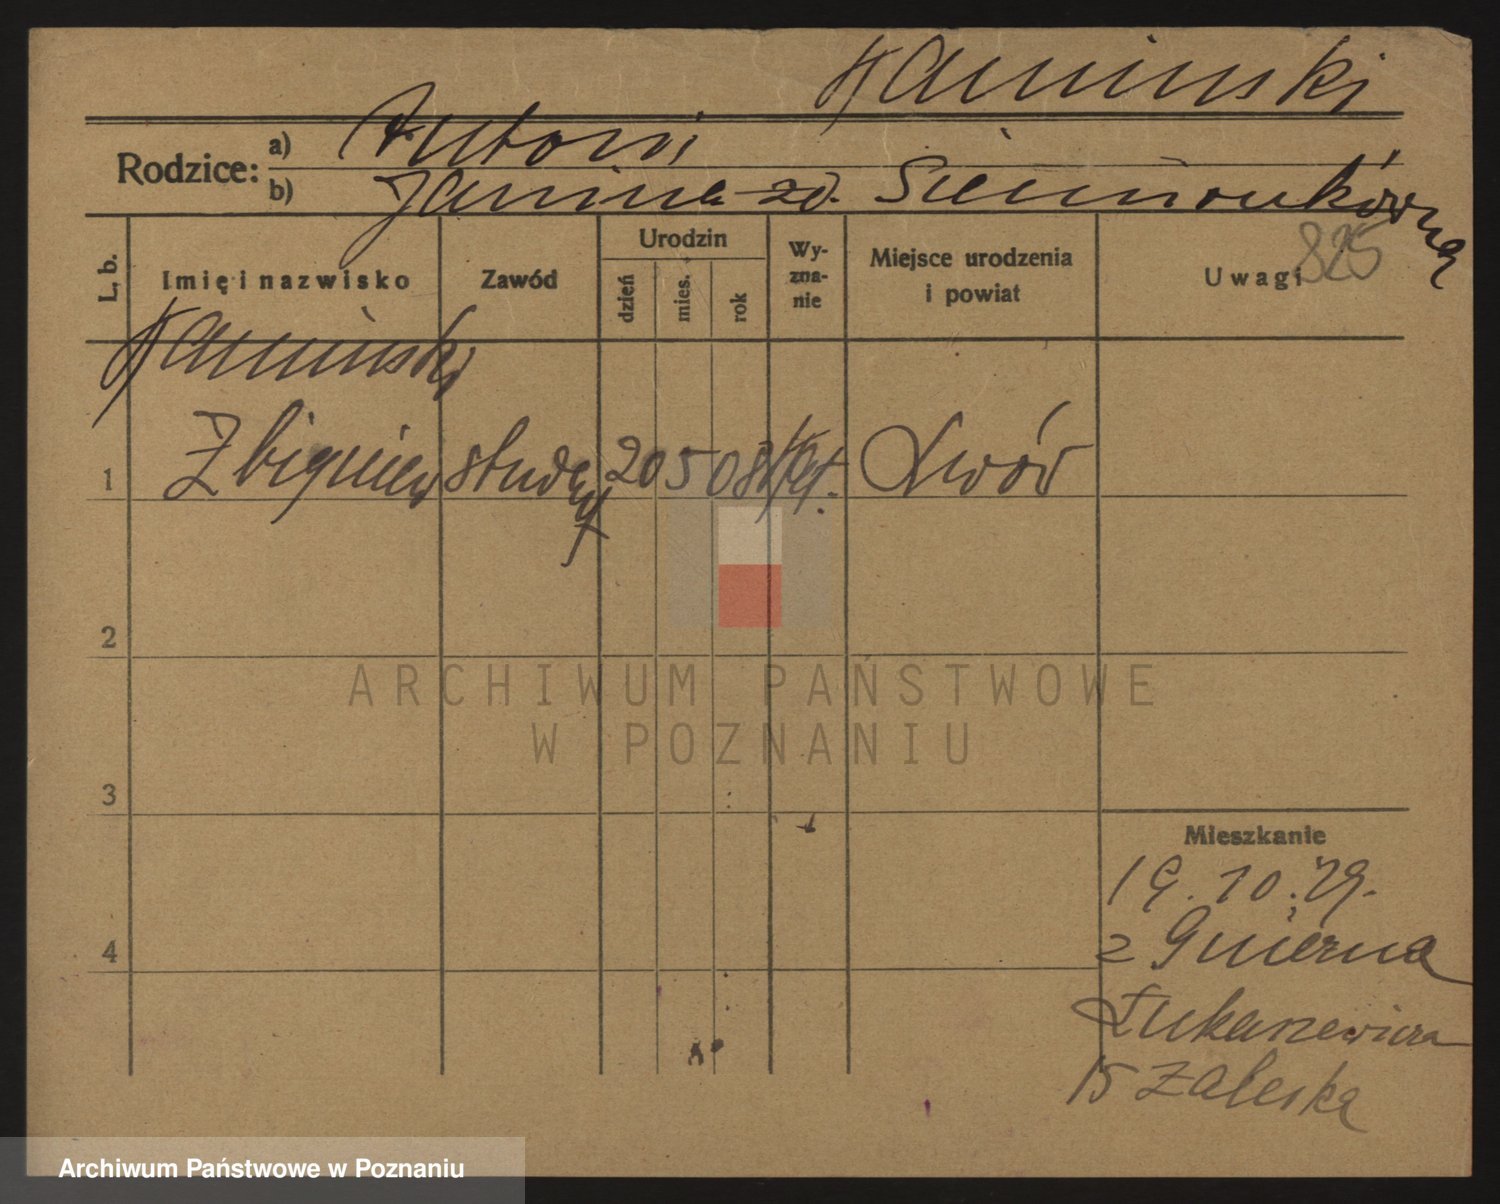 Kamiński
Rodzice: a) Antoni
b) Janina zd. Siemionkówna
825
L. b. Imię i nazwisko Zawód Urodzin dzień mies. rok Wy-zna-nie Miejsce urodzenia i powiat Uwagi
Kamiński
1 Zbigniew student 20 5 08 kat. Lwów
2
3
4
Mieszkanie
19.10.29.
z Gniezna
Łukaszewicza
15 Zaleska
ARCHIWUM PAŃSTWOWE
W POZNANIU
Archiwum Państwowe w Poznaniu